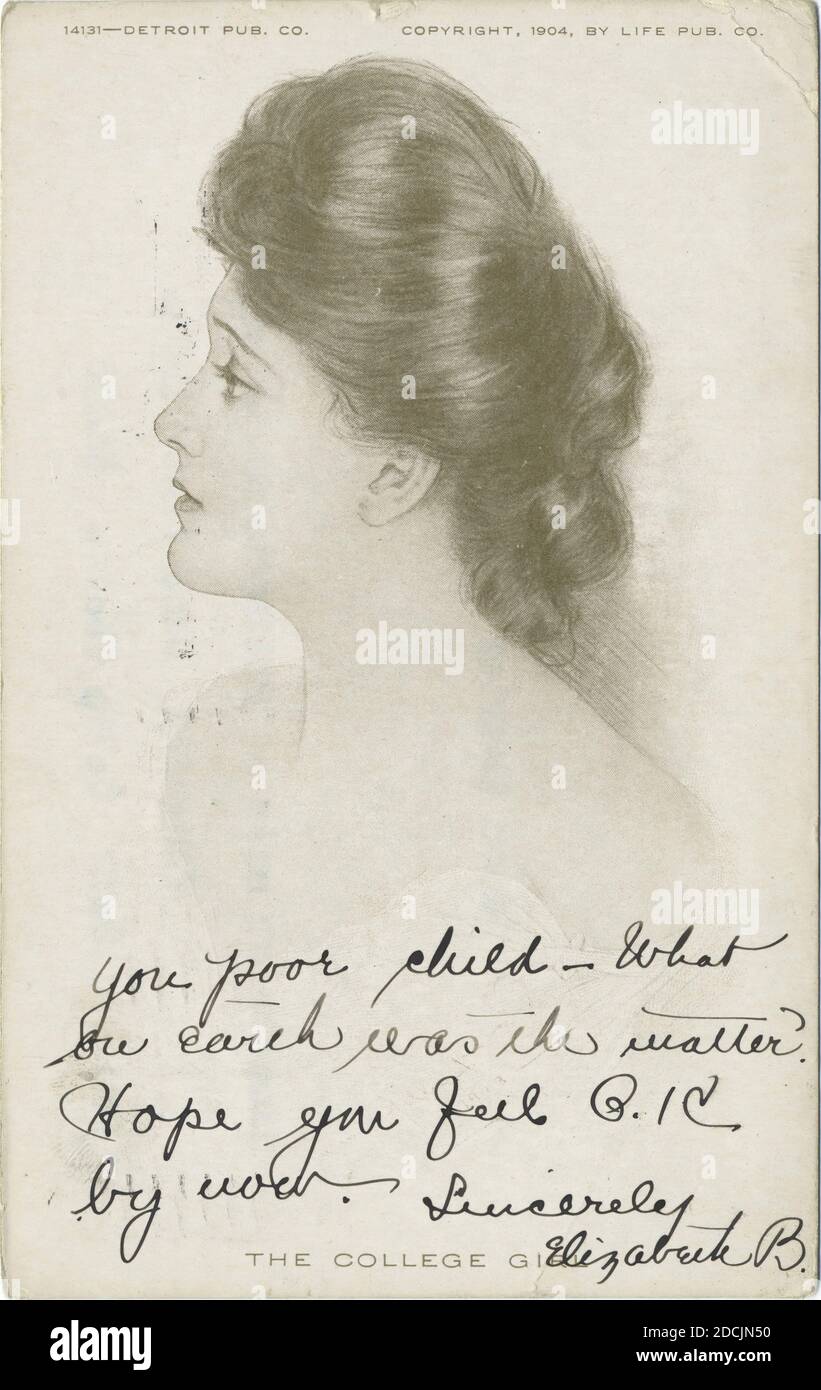 14131—DETROIT PUB. CO. COPYRIGHT, 1904, BY LIFE PUB. CO.
alamy
alamy
alamy
you poor child – What
on earth was the matter?
Hope you feel O.K
by now. – Sincerely
Elizabeth B.
THE COLLEGE GI
alamy
Image ID: 2DCJN50
www.alamy.com